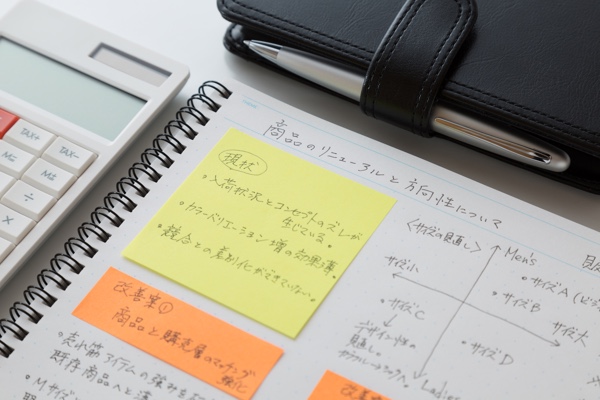 TAX+
TAX-
M=
M-
÷
×
商品のリニューアルと方向性について
現状
・入荷状況とコンセプトのズレが
生じている。
・カラーバリエーション増の効果薄。
・競合との差別化ができていない。
改善案①
商品と販売層のマッチング
強化
・売れ筋アイテムの強みを
既存商品へと
・Mサイズ
〈サイズの見直し〉
Men's
サイズ小
・サイズA
・サイズB
サイズ大
・サイズC
デザイン性の
見直し。
・サイズD
Ladies
改善案